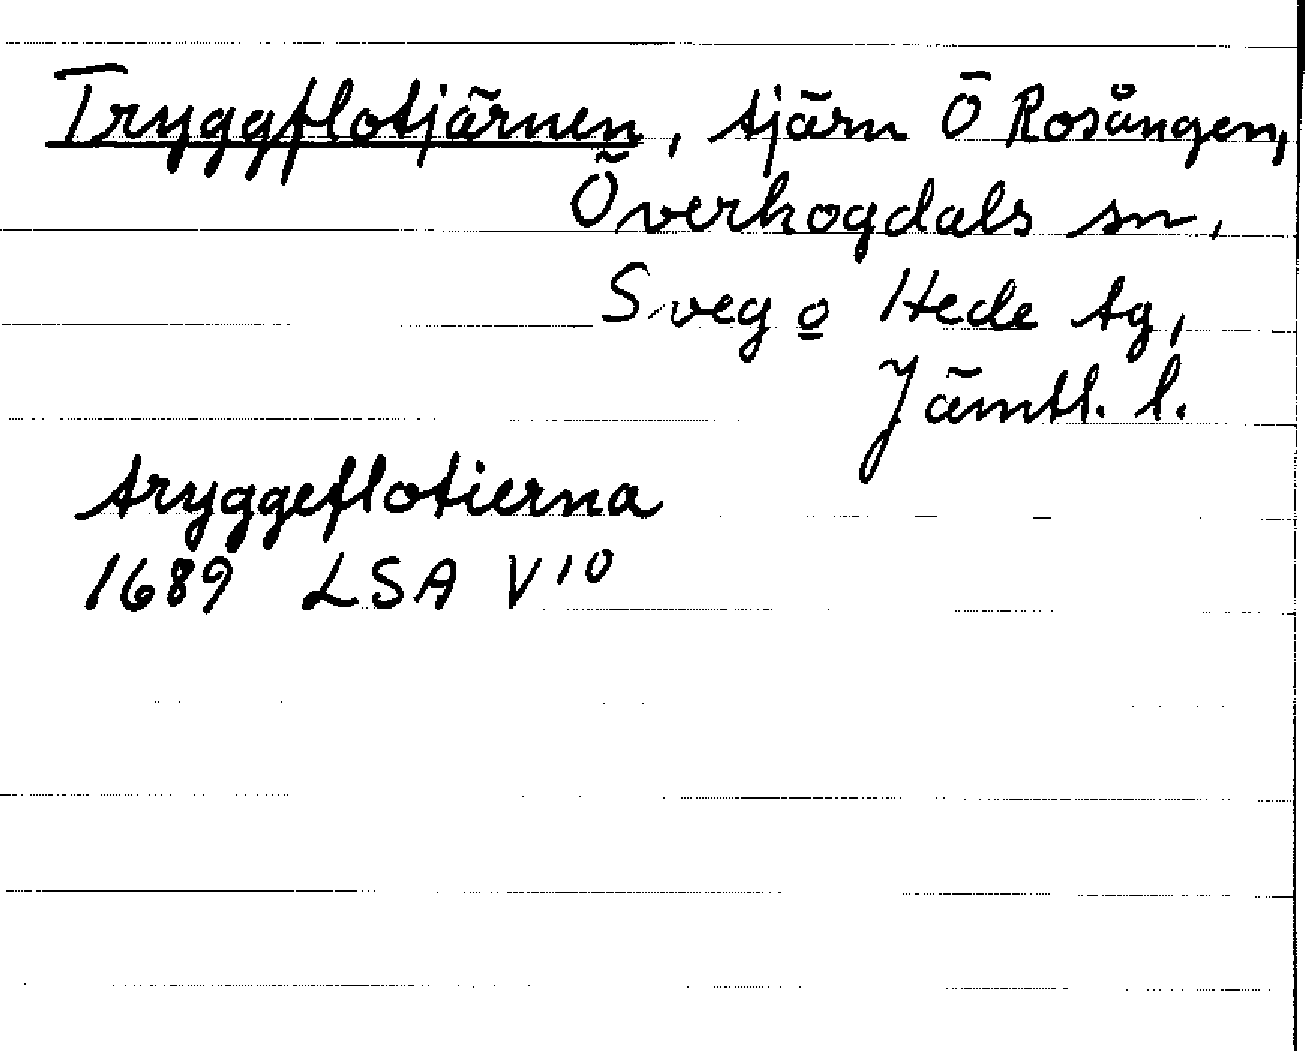 Tryggflotjärnen, tjärn Ö Rosången,
Överhogdals sn,
Sveg o Hede tg,
Jämtl. l.
tryggeflotierna
1689 LSA V10